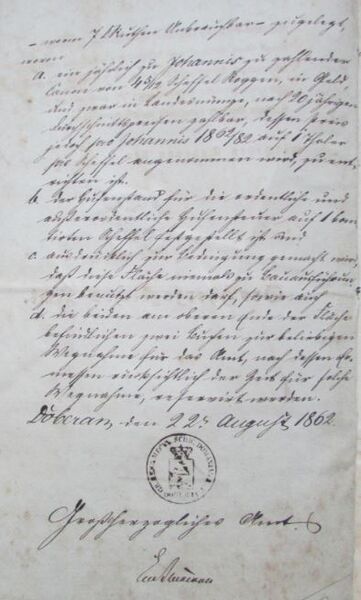 — wenn 7 Ruthen Unbrauchbar — zugelegt,
wenn
a. ein jährlich zu Johannis zu zahlender
Canon von 4 Scheffel Roggen, in Geld
und zwar in Landesmünze, nach 20 jährigen
Durchschnittspreisen zahlbar, dessen Preis
jedoch pro Johannis 1862/82 auf 1 Thaler
pro Scheffel angenommen wird, zu ent-
richten ist.
b. der Hufenstand für die ordentliche und
außerordentliche Hufensteuer auf 1 bon-
tirten Scheffel festgestellt ist und
c. ausdrücklich zur Bedingung gemacht wird,
daß diese Fläche niemals zu Bauausführun-
gen benutzt werden darf, sowie auch
d. die beiden am oberen Ende der Fläche
befindlichen zwei Buchen zur beliebigen
Wegnahme für das Amt, nach dessen Er-
messen rücksichtlich der Zeit für solche
Wegnahme, reservirt werden.
Doberan, den 22. August 1862.
Großherzogliches Amt.